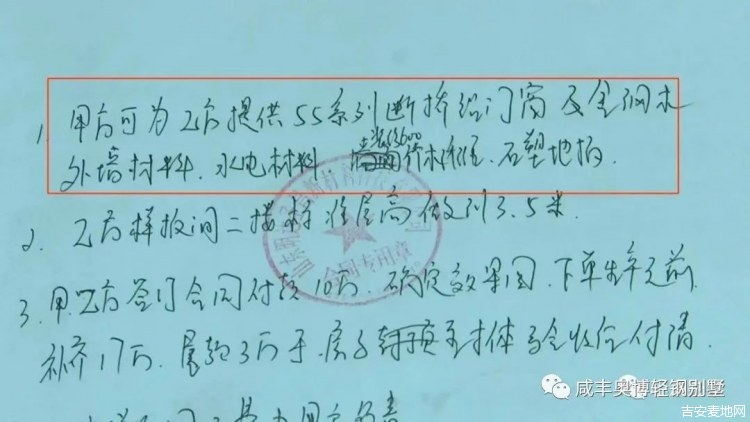 1. 甲方可为乙方提供55系列断桥铝门窗及金钢木
外墙材料.水电材料 标准.石塑地板.
2. 乙方样板间二楼标准层高做到3.5米.
3. 甲乙方签订合同付款10万.确定效果图.下单生产之前
补齐17万.尾款3万于.房子 主体验收后付清
合同专用章
咸丰奥博轻钢别墅
吉安麦地网